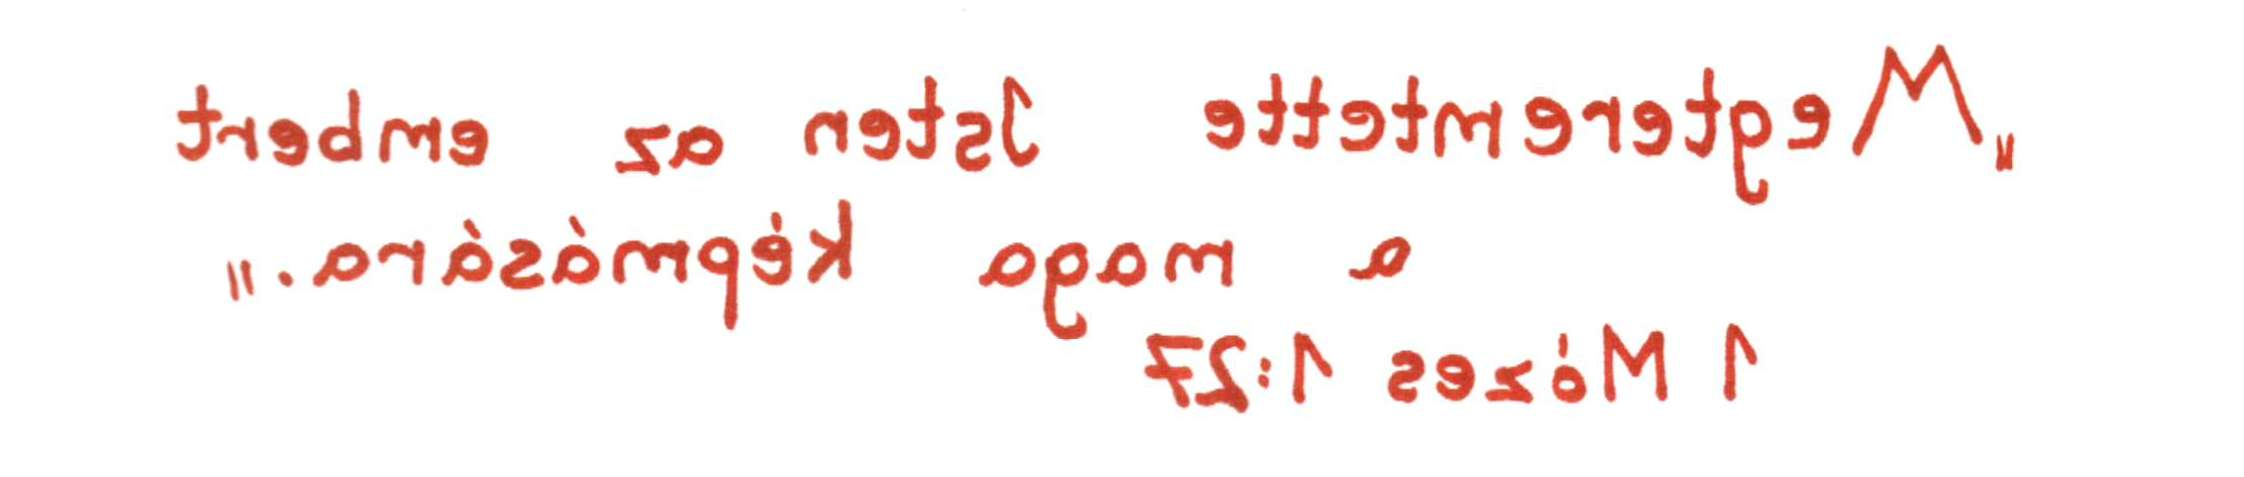 „Megteremtette Isten az embert
a maga képmására."
1 Mózes 1:27